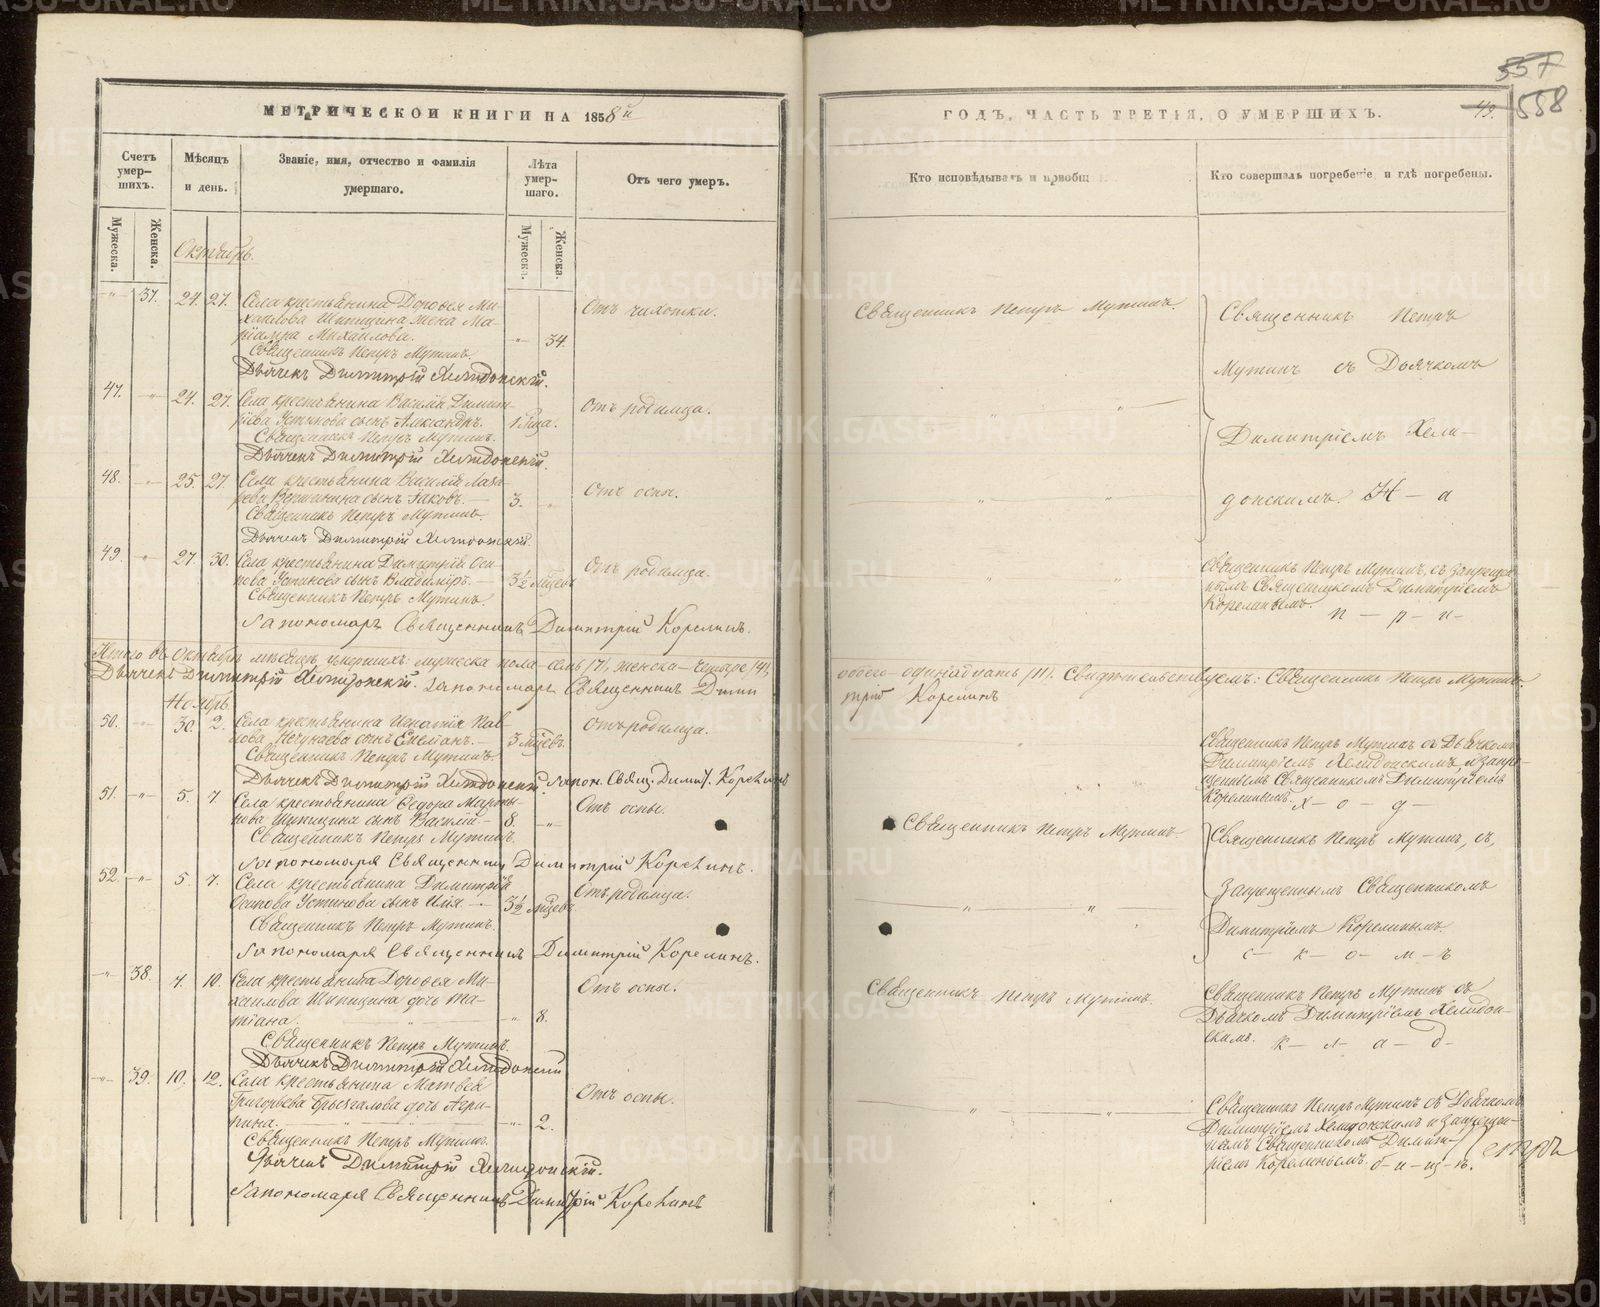 МЕТРИЧЕСКОЙ КНИГИ НА 1858й
Счетъ умер-шихъ.
Мѣсяцъ и день.
Званіе, имя, отчество и фамилія умершаго.
Лѣта умер-шаго.
Отъ чего умеръ.
Мужеска.
Женска.
Мужеска.
Женска.
Октябрь.
-"- 37. 24. 27. Села крестьянина Дорофея Ми-
хаилова Шипицина жена Ма-
ріамна Михаилова. -"- 34. Отъ чихотки.
Священникъ Петръ Мутинъ.
Дьячекъ Димитрій Хелидонскій.
47. -"- 24. 27. Села крестьянина Василія Димит-
ріева Устинова сынъ Александръ. 1 Года. Отъ родимца.
Священникъ Петръ Мутинъ.
Дьячекъ Димитрій Хелидонскій.
48. -"- 25. 27. Села крестьянина Василія Лаза-
рева сынъ Іаковъ. 3. -"- Отъ оспы.
Священникъ Петръ Мутинъ.
Дьячекъ Димитрій Хелидонскій.
49. -"- 27. 30. Села крестьянина Димитрія Оси-
пова Устинова сынъ Владиміръ. 3½ мѣсев. Отъ родимца.
Священникъ Петръ Мутинъ.
За пономаря Священникъ Димитрій Корелинъ.
Итого въ Октябрѣ мѣсяцѣ умершихъ: мужеска пола семь /7/, женска – четыре /4/,
Дьячекъ Димитрій Хелидонскій. За пономаря Священникъ Дими
Ноябрь.
50. -"- 30. 2. Села крестьянина Игнатія Пав-
лова сынъ Емелианъ. 3 мѣсев. Отъ родимца.
Священникъ Петръ Мутинъ.
Дьячекъ Димитрій Хелидонскій. За пон. Свящ. Димит. Корелинъ
51. -"- 5. 7. Села крестьянина Ѳедора Марты-
нова Шипицина сынъ Василій 8. -"- Отъ оспы.
Священникъ Петръ Мутинъ.
За пономаря Священникъ Димитрій Корелинъ.
52. -"- 5. 7. Села крестьянина Димитрія
Осипова Устинова сынъ Илія 3½ мѣсев. Отъ родимца.
Священникъ Петръ Мутинъ.
За пономаря Священникъ Димитрій Корелинъ.
-"- 38. 7. 10. Села крестьянина Дорофея Ми-
хаилова Шипицина дочь Та-
тіана. -"- 8. Отъ оспы.
Священникъ Петръ Мутинъ.
Дьячекъ Димитрій Хелидонскій
-"- 39. 10. 12. Села крестьянина Матвея
Григорьева Брызгалова дочь Агри-
пина. -"- 2. Отъ оспы.
Священникъ Петръ Мутинъ.
Дьячекъ Димитрій Хелидонскій.
За пономаря Священникъ Димитрій Корелинъ
557
558
49.
ГОДЪ, ЧАСТЬ ТРЕТІЯ, О УМЕРШИХЪ.
Кто исповѣдывалъ и пріобщ
Кто совершалъ погребеніе, и гдѣ погребены.
Священникъ Петръ Мутинъ.
Священникъ Петръ
Мутинъ съ Дьячкомъ
Димитріемъ Хели-
донскимъ. Н – а
Священникъ Петръ Мутинъ, съ запрещен-
нымъ Священникомъ Димитріемъ
Корелинымъ. п – р – и –
обоего – одинадцать /11/. Свидѣтельствуемъ: Священникъ Петръ Мутинъ.
трій Корелинъ
Священникъ Петръ Мутинъ съ Дьячкомъ
Димитріемъ Хелидонскимъ, и запре-
щеннымъ Священникомъ Димитріемъ
Корелинымъ. х – о – д –
Священникъ Петръ Мутинъ.
Священникъ Петръ Мутинъ, съ
запрещеннымъ Священникомъ
Димитріемъ Корелинымъ
с – к – о – м – ъ
Священникъ Петръ Мутинъ.
Священникъ Петръ Мутинъ съ
Дьячкомъ Димитріемъ Хелидон-
скимъ. к – л – а – д –
Священникъ Петръ Мутинъ съ Дьячкомъ
Димитріемъ Хелидонскимъ и запрещен-
нымъ Священникомъ Димит-
ріемъ Корелинымъ. б – и – щ – ѣ.
METRIKI.GASO-URAL.RU